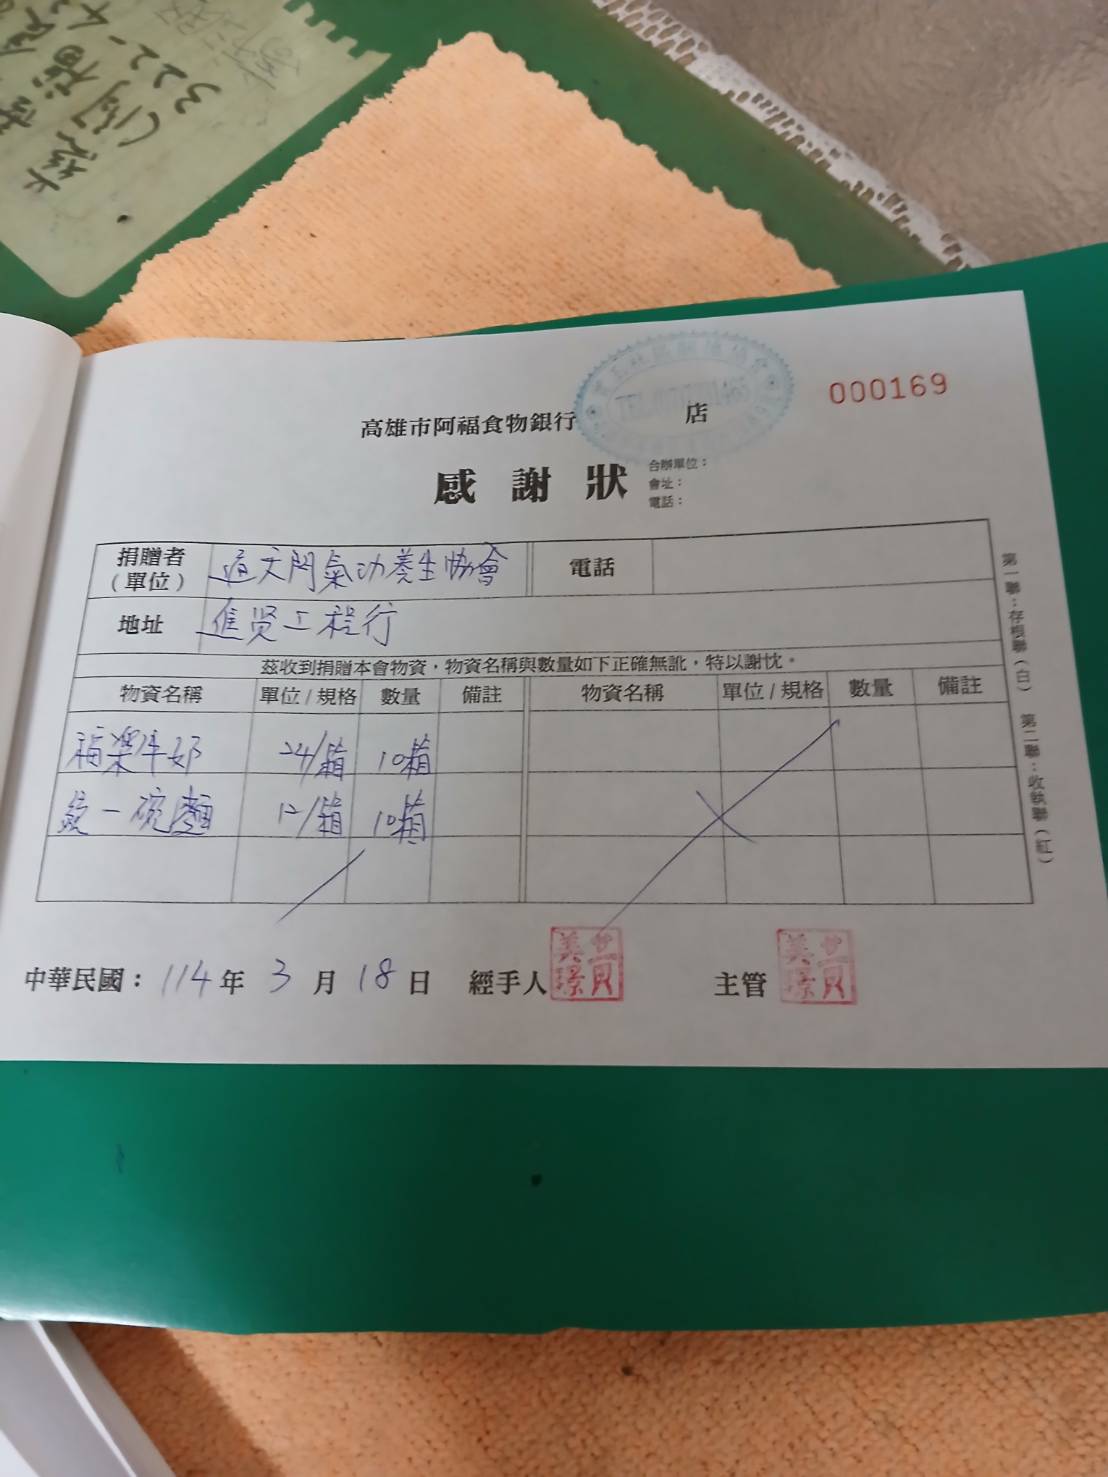 (阿福食
322-43
000169
高雄市阿福食物銀行 店
感謝狀
合辦單位：
會址：
電話：
捐贈者(單位) 道天門氣功養生協會 電話
地址 進贤工程行
茲收到捐贈本會物資，物資名稱與數量如下正確無訛，特以謝忱。
物資名稱 單位/規格 數量 備註 物資名稱 單位/規格 數量 備註
福樂牛奶 24/箱 10箱
統一碗麵 12/箱 10箱
中華民國：114年 3月 18日 經手人 主管
第一聯：存根聯(白) 第二聯：收執聯(紅)